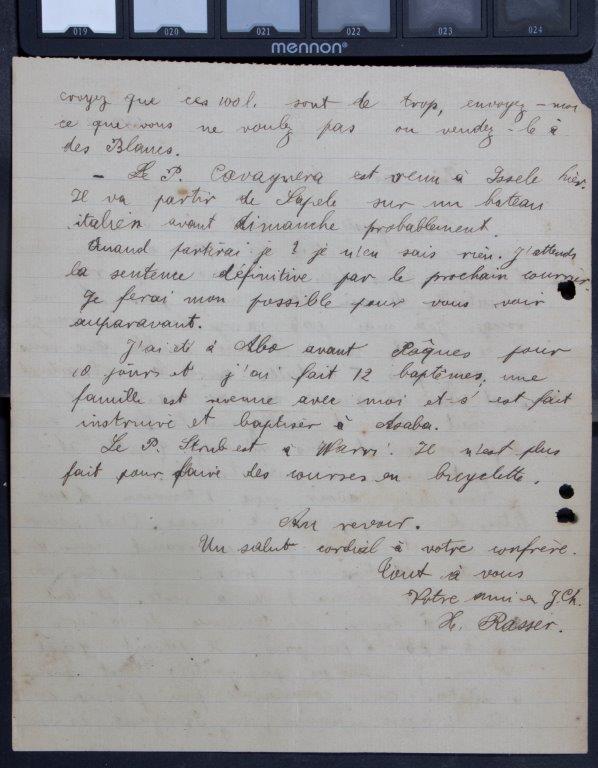 019 020 021 022 023 024
mennon®
croyez que ces 100 l. sont de trop, envoyez-moi
ce que vous ne voulez pas ou vendez-le à
des Blancs.
- Le P. Cavagnera est venu à Issele hier.
Il va partir de Sapele sur un bateau
italien avant dimanche probablement.
Quand partirai je ? je n'en sais rien. J'attends
la sentence définitive par le prochain courrier.
Je ferai mon possible pour vous voir
auparavant.
J'ai été à Abo avant Pâques pour
10 jours et j'ai fait 12 baptêmes, une
famille est revenue avec moi et s'est fait
instruire et baptiser à Asaba.
Le P. Strub est à Warri. Il n'est plus
fait pour faire des courses en bicyclette.
Au revoir.
Un salut cordial à votre confrère.
Tout à vous
Votre ami en J. Ch.
H. Rasser.